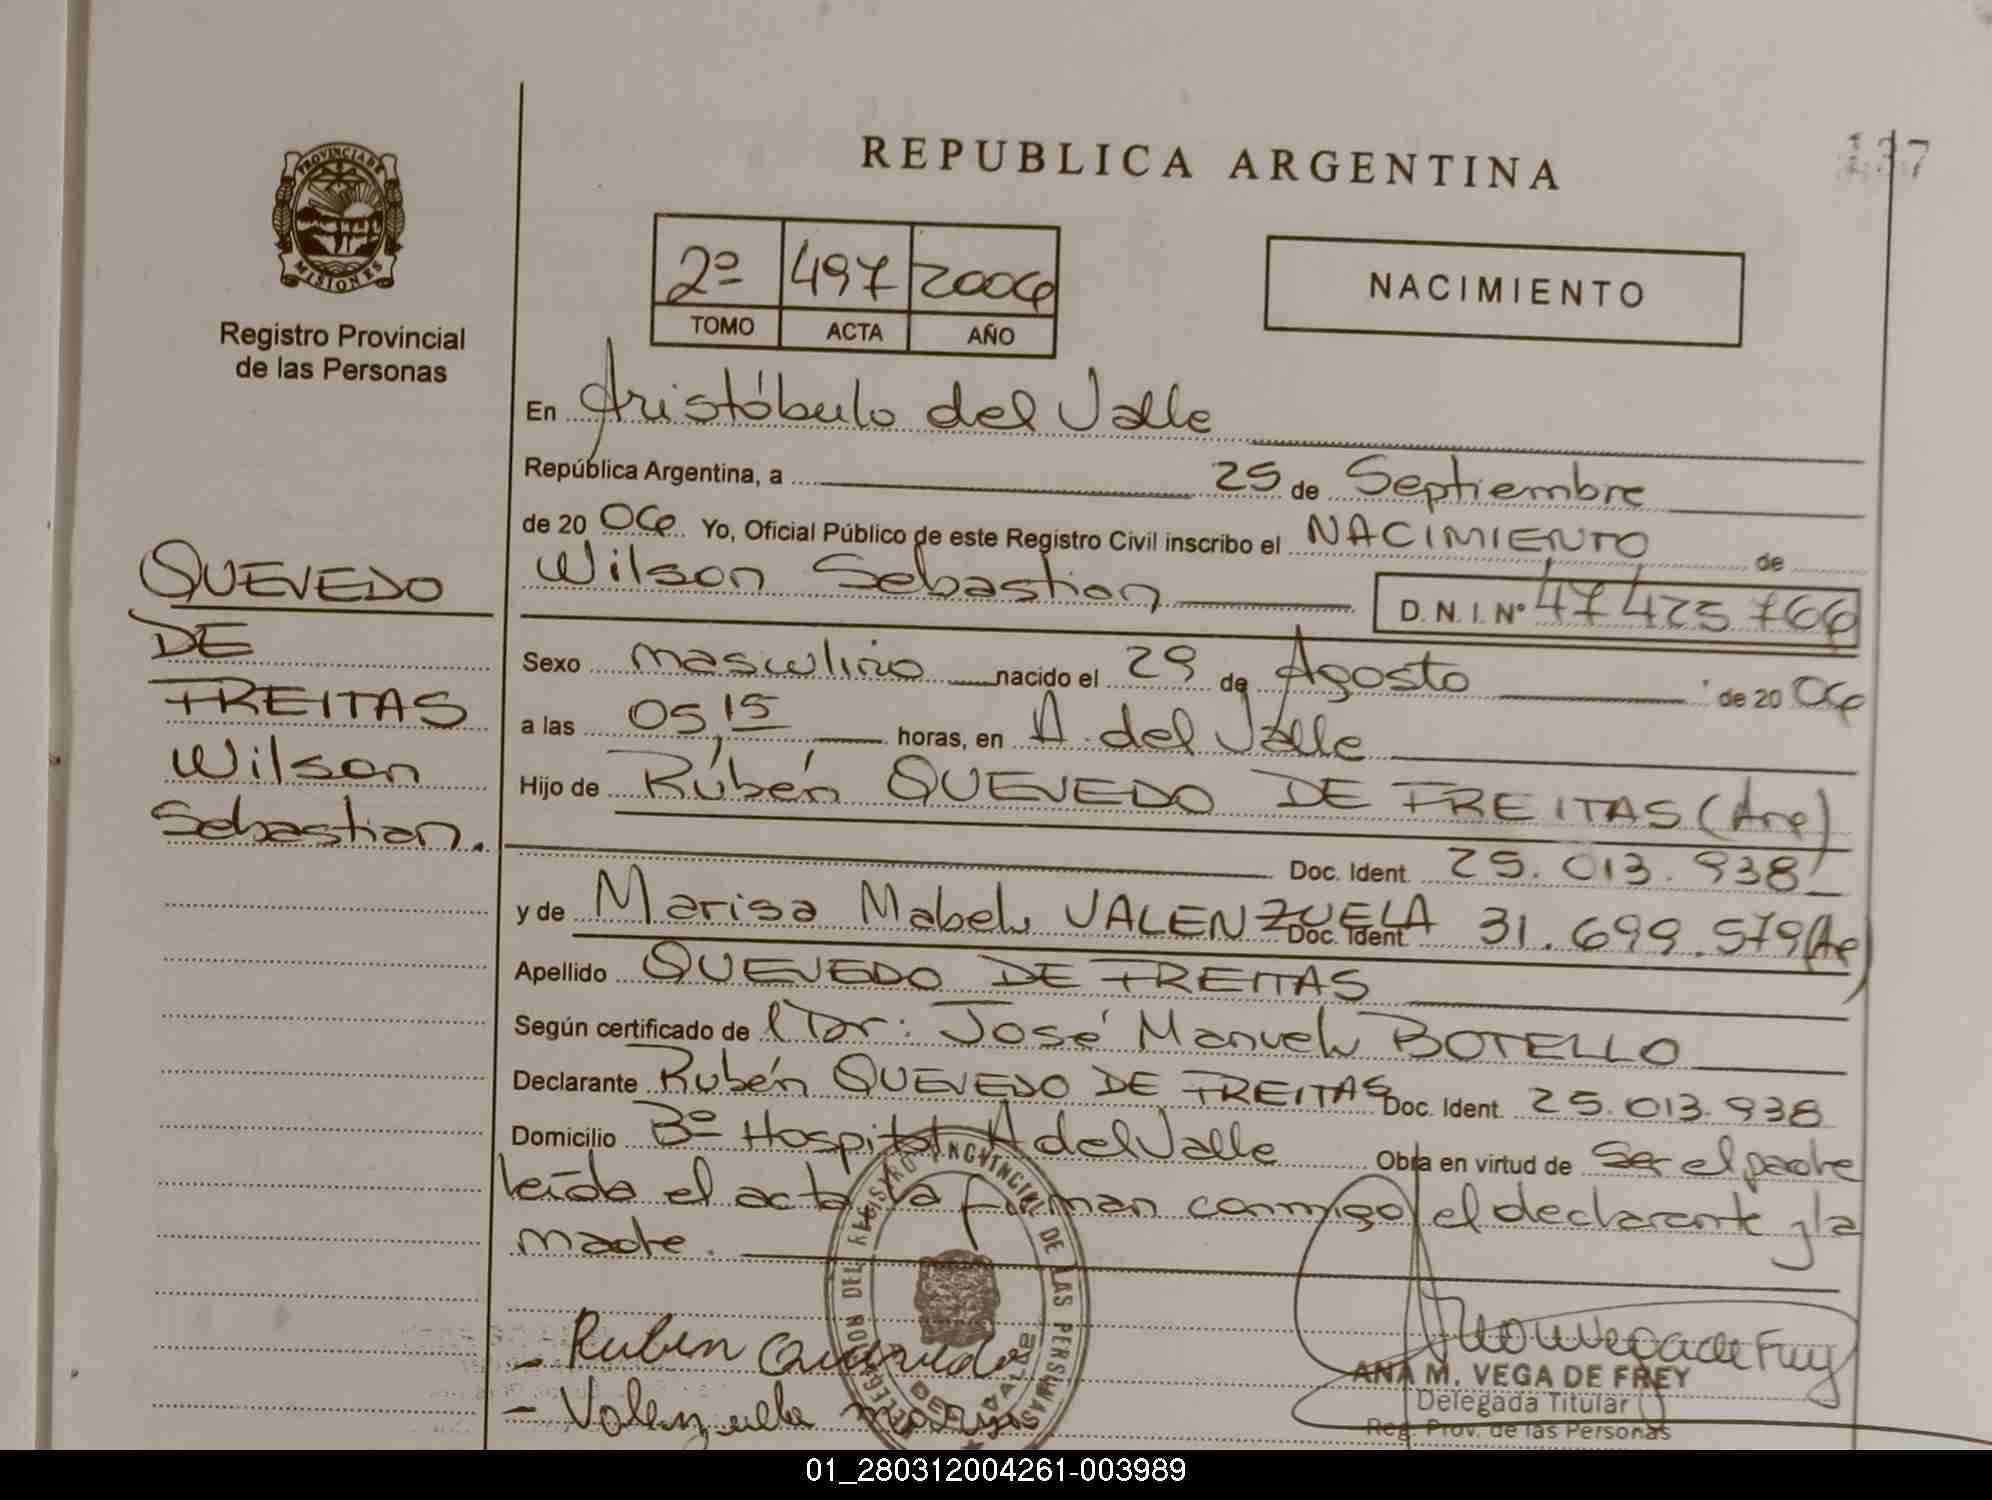 137
REPUBLICA ARGENTINA
PROVINCIA DE
MISIONES
Registro Provincial
de las Personas
2º 497 2006
TOMO ACTA AÑO
NACIMIENTO
En Aristóbulo del Valle
República Argentina, a 25 de Septiembre
de 20 06 Yo, Oficial Público de este Registro Civil inscribo el NACIMIENTO de
Wilson Sebastian D.N.I. Nº 47 425 766
QUEVEDO
DE
FREITAS
Wilson
Sebastian.
Sexo masculino nacido el 29 de Agosto de 20 06
a las 05,15 horas, en A. del Valle
Hijo de Rúbén QUEVEDO DE FREITAS (Arg)
Doc. Ident. 25.013.938
y de Marisa Mabel VALENZUELA Doc. Ident. 31.699.579 (Arg)
Apellido QUEVEDO DE FREITAS
Según certificado del Dr: José Manuel BOTELLO
Declarante Rubén QUEVEDO DE FREITAS Doc. Ident. 25.013.938
Domicilio Bº Hospital A del Valle Obra en virtud de Ser el padre
leída el acta la firman conmigo el declarante y la
madre.
DELEGACION DEL REGISTRO PROVINCIAL DE LAS PERSONAS
DEL VALLE
- Ruben Quevedo
- Valenzuela
Ana M Vega de Frey
ANA M. VEGA DE FREY
Delegada Titular
Reg. Prov. de las Personas
01_280312004261-003989